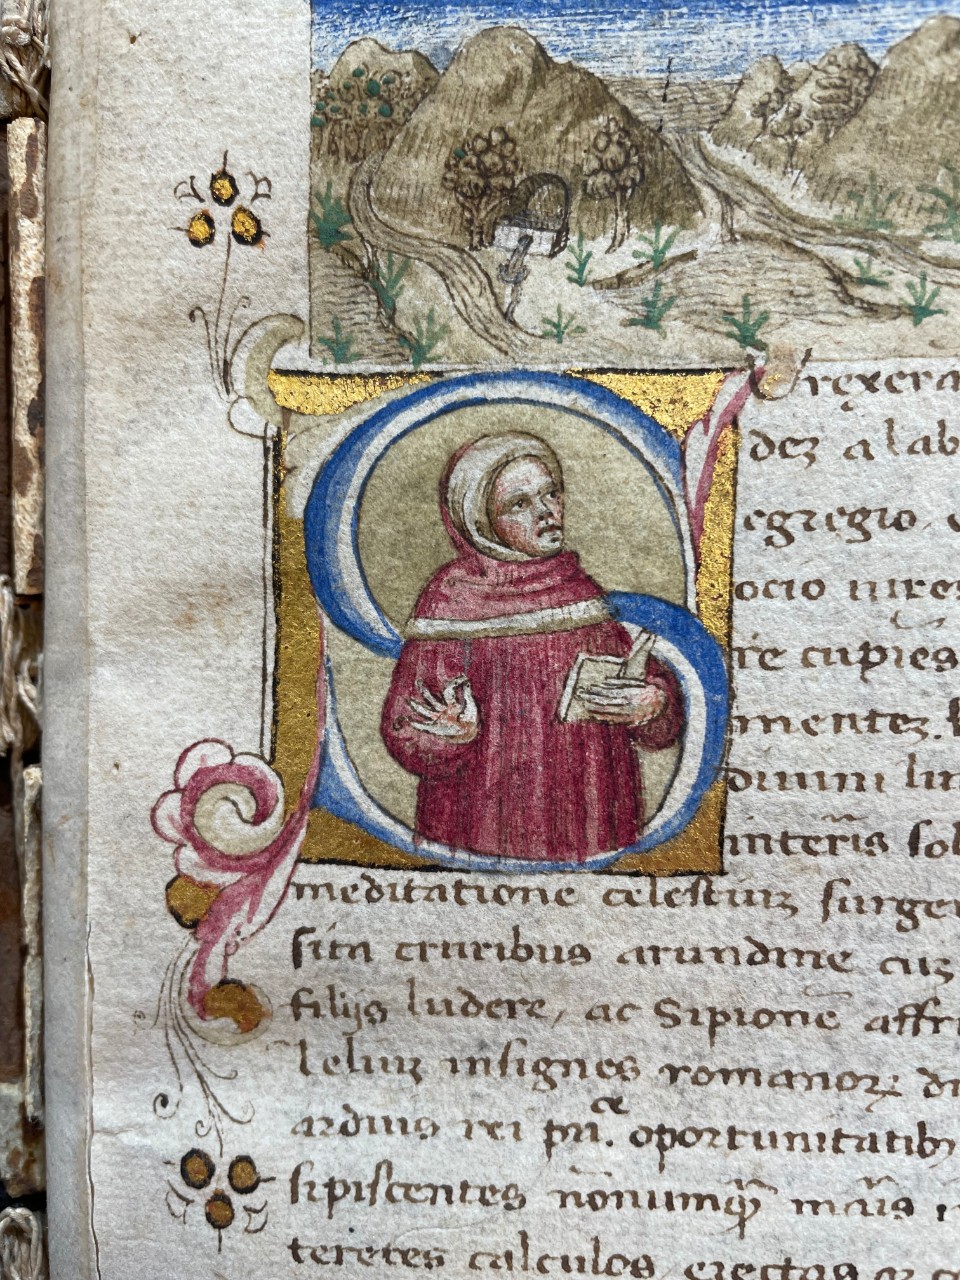 Surexera
dez a lab
egregio, e
ocio iure
re cupies
mentez.
diuini lu
inter̃is sol
meditatione celestiuz surge
sita cruribus arundine cuz
filijs ludere, ac Sipionē affri
leliuz insignes romanoꝝ
arduis rei pu.ͨͤ oportunitatibꝫ
sipiscentes nōnumqꝫ mãis
teretes calculos, erectos ac